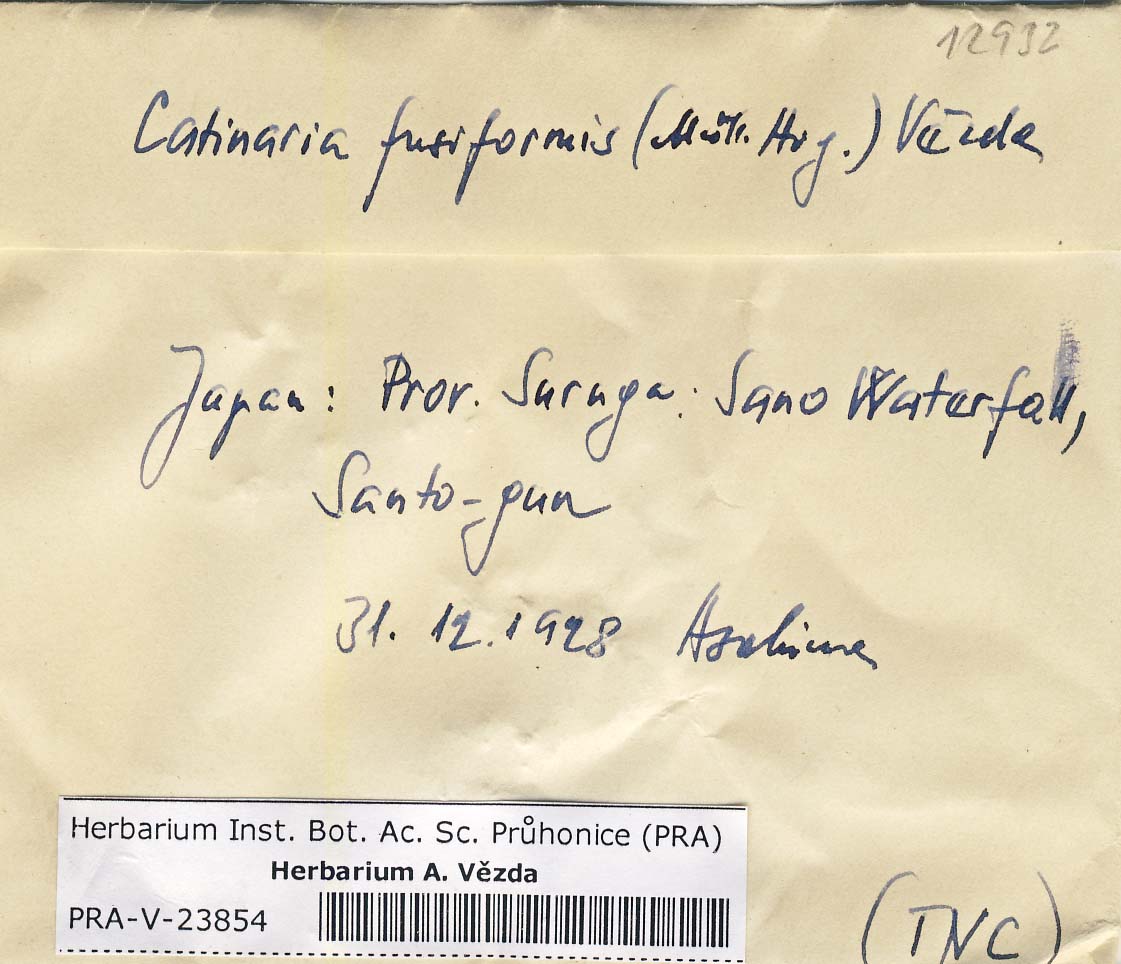 12932
Catinaria fusiformis (Müll. Arg.) Vězda
Japan: Prov. Suruga: Sano Waterfall,
Santo-gun
31. 12. 1928 Asahina
Herbarium Inst. Bot. Ac. Sc. Průhonice (PRA)
Herbarium A. Vězda
PRA-V-23854
(TNC)